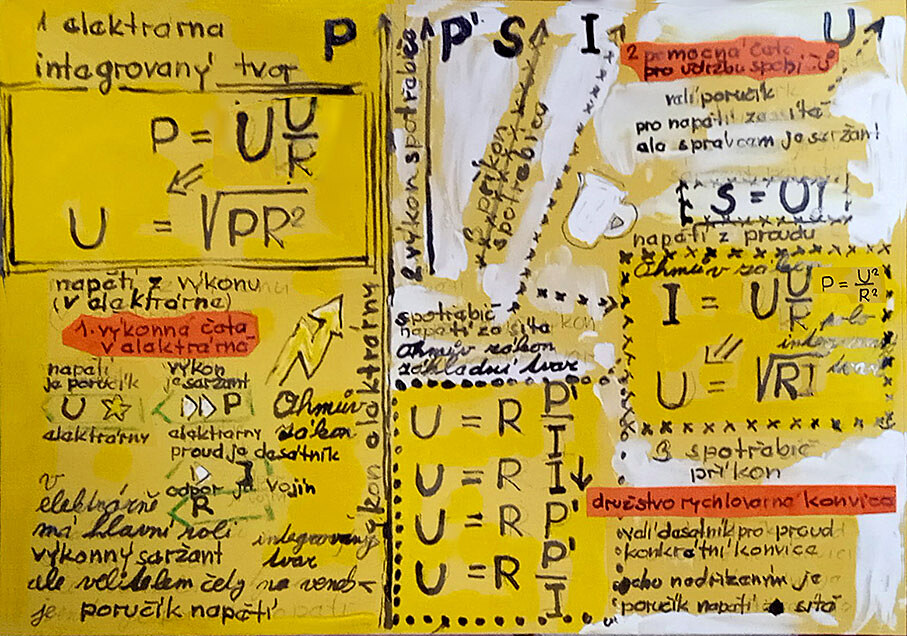 1 elektrárna
integrovaný tvor
P
P = U U/R
U = √PR²
napětí z výkonu
(v elektrárně)
1. výkonná četa
v elektrárně
napětí
je poručík
výkon
je seržant
U
P
elektrárny
elektrárny
proud je desátník
I
odpor je vojín
R
v
elektrárně
má hlavní roli
výkonný seržant
ale velitelem čety na venek
je poručík napětí
integrovaný
tvar
Ohmův
zákon
výkon elektrárny
P' S I U
2 výkon spotřebiče
příkon
spotřebiče
spotřebič
napětí ze sítě
Ohmův zákon
základní tvar
U = R P'/I
U = R I
U = R P'
U = R P'/I
2 pomocná četa
pro údržbu spotř. U
velí poručík
pro napětí ze sítě
ale správcem je seržant
S = UI
napětí z proudu
Ohmův zákon
I = U U/R
P = U²/R²
polo
tvar
U = √RI
3 spotřebič
příkon
družstvo rychlovarná konvice
velí desátník pro proud
konkrétní konvice
jeho nadřízeným je
poručík napětí sítě